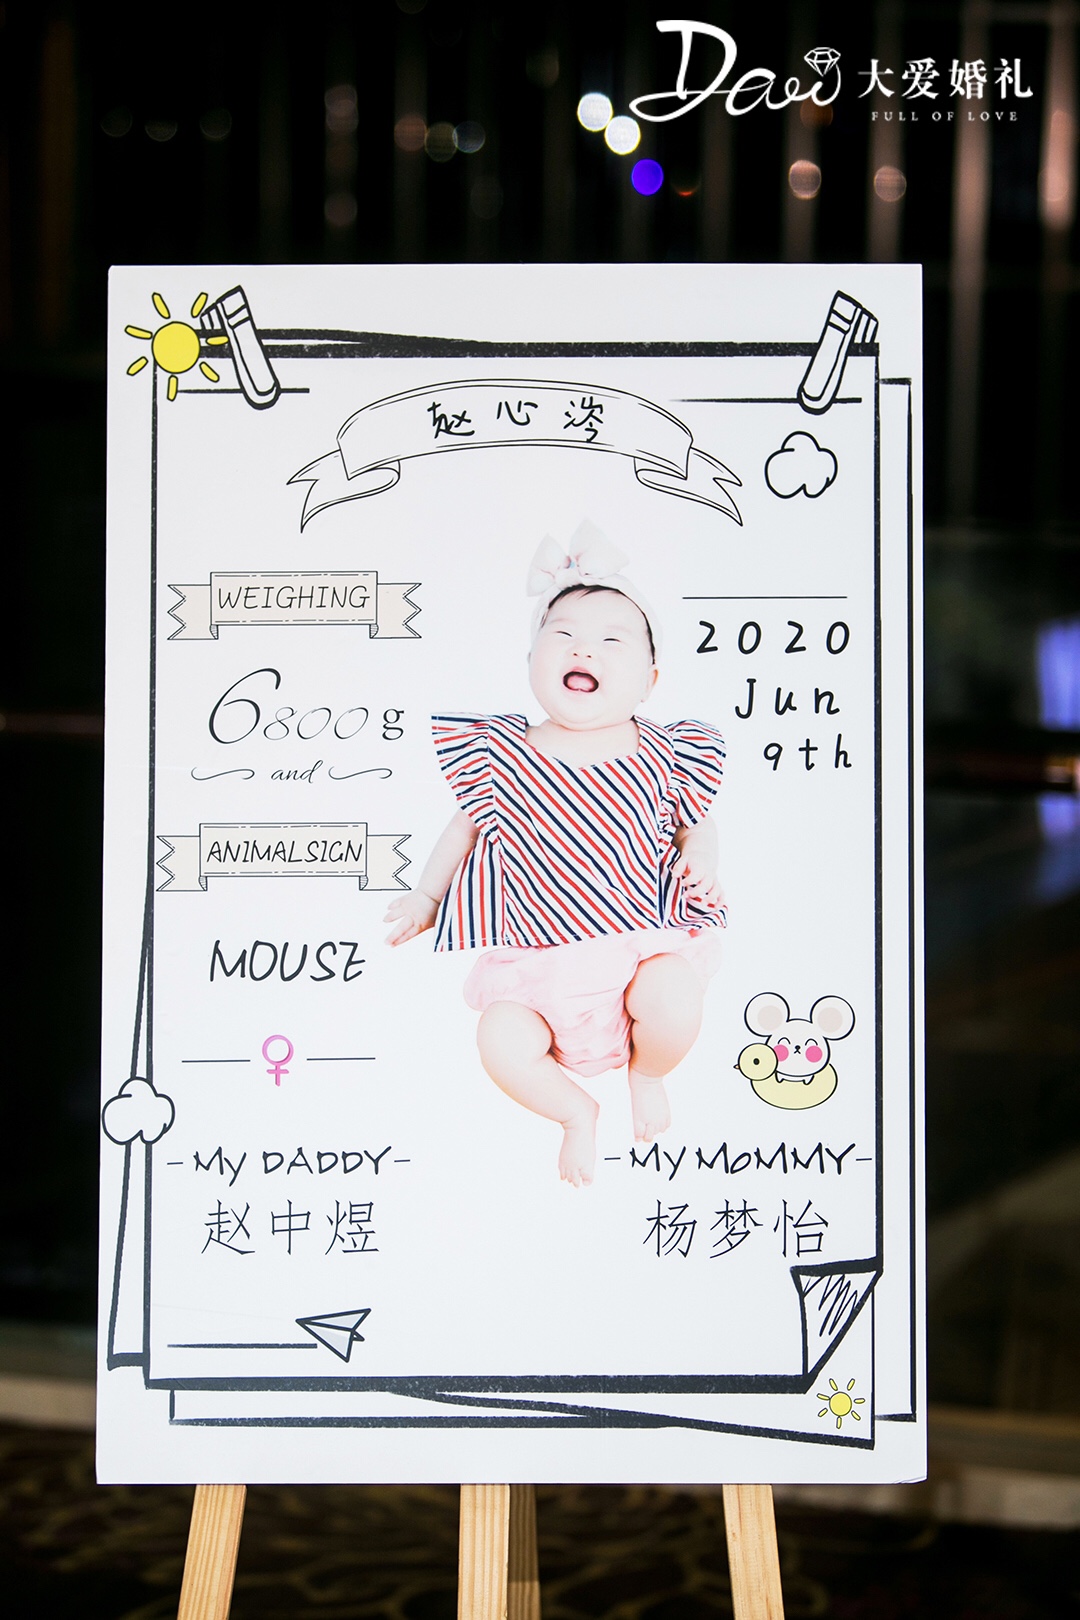 Davi 大爱婚礼
FULL OF LOVE
赵心涔
WEIGHING
6800g
and
ANIMALSIGN
MOUSE
♀
2020
Jun
9th
-My DADDY-
赵中煜
-My MoMMY-
杨梦怡